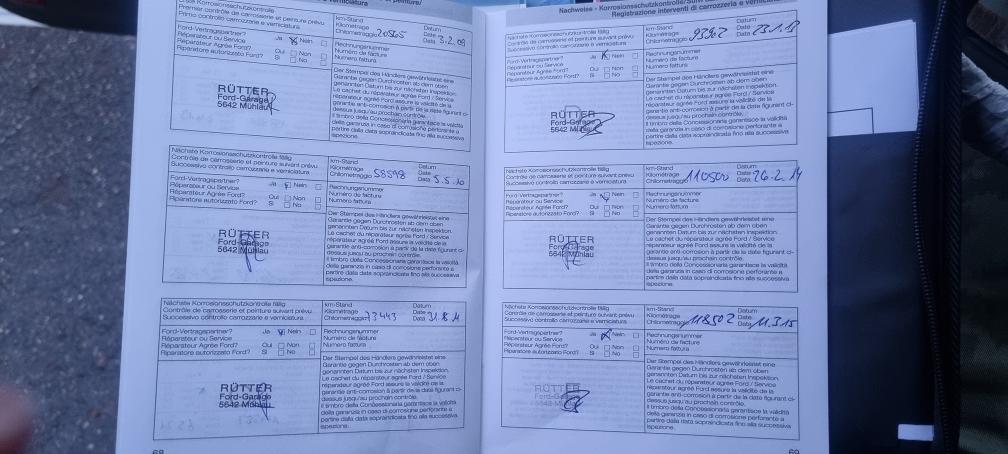 Premier contrôle de carrosserie et peinture prévu
Primo controllo carrozzeria e verniciatura
km-Stand
Kilométrage
Chilometraggio 20565
Datum
Date
Data 3.2.09
Ford-Vertragspartner? Ja Nein
Réparateur ou Service
Réparateur Agrée Ford? Oui Non
Riparatore autorizzato Ford? Si No
Rechnungsnummer
Numéro de facture
Numero fattura
RÜTTER
Ford-Garage
5642 Mühlau
Der Stempel des Händlers gewährleistet eine
Garantie gegen Durchrosten ab dem oben
genannten Datum bis zur nächsten Inspektion.
Le cachet du réparateur agrée Ford / Service
réparateur agrée Ford assure la validité de la
garantie anti-corrosion à partir de la date figurant ci-
dessus jusqu'au prochain contrôle.
Il timbro della Concessionaria garantisce la validità
della garanzia in caso di corrosione perforante a
partire dalla data sopraindicata fino alla successiva
ispezione.
Nächste Korrosionsschutzkontrolle fällig
Contrôle de carrosserie et peinture suivant prévu
Successivo controllo carrozzeria e verniciatura
km-Stand
Kilométrage
Chilometraggio 58598
Datum
Date
Data 5.5.10
Ford-Vertragspartner? Ja Nein
Réparateur ou Service
Réparateur Agrée Ford? Oui Non
Riparatore autorizzato Ford? Si No
Rechnungsnummer
Numéro de facture
Numero fattura
RÜTTER
Ford-Garage
5642 Mühlau
Der Stempel des Händlers gewährleistet eine
Garantie gegen Durchrosten ab dem oben
genannten Datum bis zur nächsten Inspektion.
Le cachet du réparateur agrée Ford / Service
réparateur agrée Ford assure la validité de la
garantie anti-corrosion à partir de la date figurant ci-
dessus jusqu'au prochain contrôle.
Il timbro della Concessionaria garantisce la validità
della garanzia in caso di corrosione perforante a
partire dalla data sopraindicata fino alla successiva
ispezione.
Nächste Korrosionsschutzkontrolle fällig
Contrôle de carrosserie et peinture suivant prévu
Successivo controllo carrozzeria e verniciatura
km-Stand
Kilométrage
Chilometraggio 73443
Datum
Date
Data 31.8.11
Ford-Vertragspartner? Ja Nein
Réparateur ou Service
Réparateur Agrée Ford? Oui Non
Riparatore autorizzato Ford? Si No
Rechnungsnummer
Numéro de facture
Numero fattura
RÜTTER
Ford-Garage
5642 Mühlau
Der Stempel des Händlers gewährleistet eine
Garantie gegen Durchrosten ab dem oben
genannten Datum bis zur nächsten Inspektion.
Le cachet du réparateur agrée Ford / Service
réparateur agrée Ford assure la validité de la
garantie anti-corrosion à partir de la date figurant ci-
dessus jusqu'au prochain contrôle.
Il timbro della Concessionaria garantisce la validità
della garanzia in caso di corrosione perforante a
partire dalla data sopraindicata fino alla successiva
ispezione.
68
Nachweise - Korrosionsschutzkontrolle
Registrazione interventi di carrozzeria e
Nächste Korrosionsschutzkontrolle fällig
Contrôle de carrosserie et peinture suivant prévu
Successivo controllo carrozzeria e verniciatura
km-Stand
Kilométrage
Chilometraggio
Datum
Date
Data
Ford-Vertragspartner? Ja Nein
Réparateur ou Service
Réparateur Agrée Ford? Oui Non
Riparatore autorizzato Ford? Si No
Rechnungsnummer
Numéro de facture
Numero fattura
RÜTTER
Ford-Garage
5642 Mühlau
Der Stempel des Händlers gewährleistet eine
Garantie gegen Durchrosten ab dem oben
genannten Datum bis zur nächsten Inspektion.
Le cachet du réparateur agrée Ford / Service
réparateur agrée Ford assure la validité de la
garantie anti-corrosion à partir de la date figurant ci-
dessus jusqu'au prochain contrôle.
Il timbro della Concessionaria garantisce la validità
della garanzia in caso di corrosione perforante a
partire dalla data sopraindicata fino alla successiva
ispezione.
Nächste Korrosionsschutzkontrolle fällig
Contrôle de carrosserie et peinture suivant prévu
Successivo controllo carrozzeria e verniciatura
km-Stand
Kilométrage
Chilometraggio 110500
Datum
Date
Data 26.2.14
Ford-Vertragspartner? Ja Nein
Réparateur ou Service
Réparateur Agrée Ford? Oui Non
Riparatore autorizzato Ford? Si No
Rechnungsnummer
Numéro de facture
Numero fattura
RÜTTER
Ford-Garage
5642 Mühlau
Der Stempel des Händlers gewährleistet eine
Garantie gegen Durchrosten ab dem oben
genannten Datum bis zur nächsten Inspektion.
Le cachet du réparateur agrée Ford / Service
réparateur agrée Ford assure la validité de la
garantie anti-corrosion à partir de la date figurant ci-
dessus jusqu'au prochain contrôle.
Il timbro della Concessionaria garantisce la validità
della garanzia in caso di corrosione perforante a
partire dalla data sopraindicata fino alla successiva
ispezione.
Nächste Korrosionsschutzkontrolle fällig
Contrôle de carrosserie et peinture suivant prévu
Successivo controllo carrozzeria e verniciatura
km-Stand
Kilométrage
Chilometraggio 118502
Datum
Date
Data 11.3.15
Ford-Vertragspartner? Ja Nein
Réparateur ou Service
Réparateur Agrée Ford? Oui Non
Riparatore autorizzato Ford? Si No
Rechnungsnummer
Numéro de facture
Numero fattura
RÜTTER
Der Stempel des Händlers gewährleistet eine
Garantie gegen Durchrosten ab dem oben
genannten Datum bis zur nächsten Inspektion.
Le cachet du réparateur agrée Ford / Service
réparateur agrée Ford assure la validité de la
garantie anti-corrosion à partir de la date figurant ci-
dessus jusqu'au prochain contrôle.
Il timbro della Concessionaria garantisce la validità
della garanzia in caso di corrosione perforante a
partire dalla data sopraindicata fino alla successiva
ispezione.
69